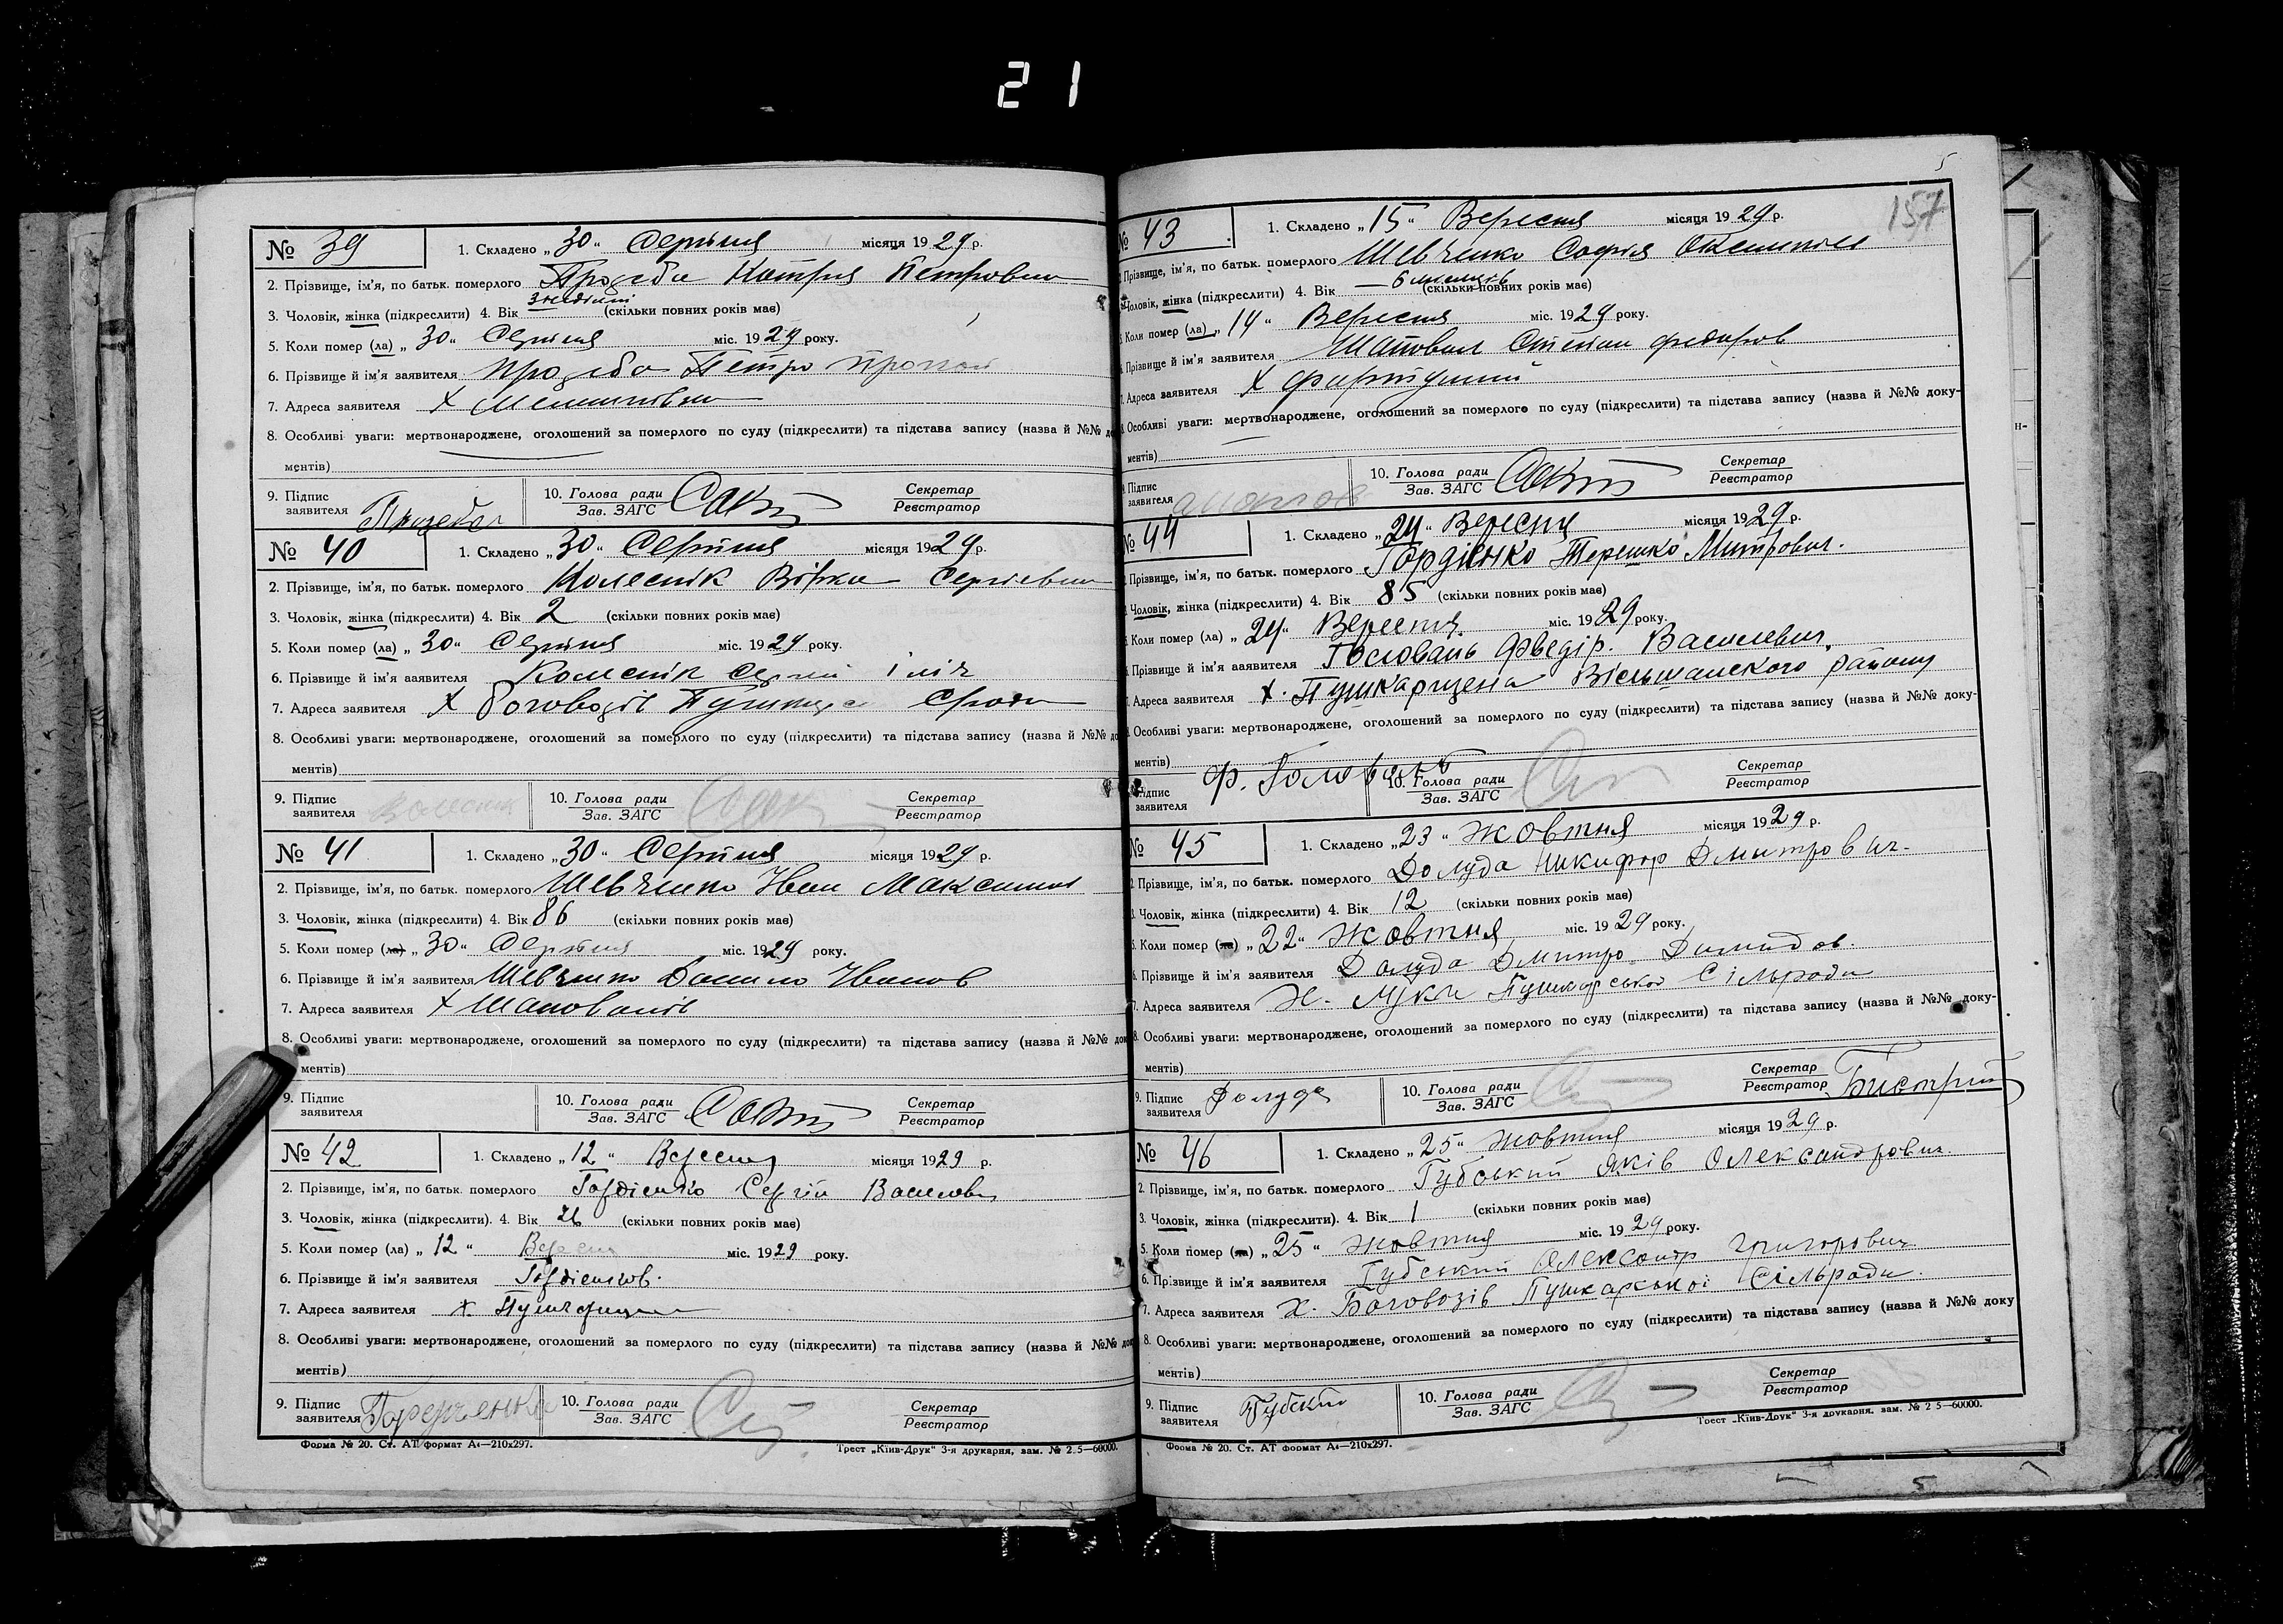 21
№ 39
1. Складено „30“ Серпня місяця 1929 р.
2. Прізвище, ім'я, по батьк. померлого Катря Петровна
3. Чоловік, жінка (підкреслити) 4. Вік (скільки повних років має)
5. Коли помер (ла) „30“ Серпня міс. 1929 року.
6. Прізвище й ім'я заявителя Петро
7. Адреса заявителя х
8. Особливі уваги: мертвонароджене, оголошений за померлого по суду (підкреслити) та підстава запису (назва й №№ до
ментів)
9. Підпис заявителя 10. Голова ради Зав. ЗАГС Секретар Реєстратор
№ 40
1. Складено „30“ Серпня місяця 1929 р.
2. Прізвище, ім'я, по батьк. померлого Колеснік Вірка Сергіевна
3. Чоловік, жінка (підкреслити) 4. Вік 2 (скільки повних років має)
5. Коли помер (ла) „30“ Серпня міс. 1929 року.
6. Прізвище й ім'я заявителя Колеснік Сергій
7. Адреса заявителя х Боговозів
8. Особливі уваги: мертвонароджене, оголошений за померлого по суду (підкреслити) та підстава запису (назва й №№ до
ментів)
9. Підпис заявителя Колесник 10. Голова ради Зав. ЗАГС Секретар Реєстратор
№ 41
1. Складено „30“ Серпня місяця 1929 р.
2. Прізвище, ім'я, по батьк. померлого Шевченко Иван Максимов
3. Чоловік, жінка (підкреслити) 4. Вік 86 (скільки повних років має)
5. Коли помер (ла) „30“ Серпня міс. 1929 року.
6. Прізвище й ім'я заявителя Шевченко Данило Иванов
7. Адреса заявителя х Шаповалів
8. Особливі уваги: мертвонароджене, оголошений за померлого по суду (підкреслити) та підстава запису (назва й №№ док
ментів)
9. Підпис заявителя 10. Голова ради Зав. ЗАГС Секретар Реєстратор
№ 42
1. Складено „12“ Вересня місяця 1929 р.
2. Прізвище, ім'я, по батьк. померлого Гордіенко Сергій Василович
3. Чоловік, жінка (підкреслити). 4. Вік 26 (скільки повних років має)
5. Коли помер (ла) „12“ Вересня міс. 1929 року.
6. Прізвище й ім'я заявителя
7. Адреса заявителя х
8. Особливі уваги: мертвонароджене, оголошений за померлого по суду (підкреслити) та підстава запису (назва й №№ док
ментів)
9. Підпис заявителя 10. Голова ради Зав. ЗАГС Секретар Реєстратор
Форма № 20. Ст. АТ формат А4—210x297. Трест „Київ-Друк“ 3-я друкарня, зам. № 2.5—60000.
157
№ 43
1. Складено „15“ Вересня місяця 1929 р.
Прізвище, ім'я, по батьк. померлого Шевченко Софія
Чоловік, жінка (підкреслити) 4. Вік — 6 місяців (скільки повних років має)
Коли помер (ла) „14“ Вересня міс. 1929 року.
Прізвище й ім'я заявителя Шаповал Степан Федоров
7. Адреса заявителя х
Особливі уваги: мертвонароджене, оголошений за померлого по суду (підкреслити) та підстава запису (назва й №№ доку-
ментів)
Підпис заявителя 10. Голова ради Зав. ЗАГС Секретар Реєстратор
№ 44
1. Складено „24“ Вересня місяця 1929 р.
Прізвище, ім'я, по батьк. померлого Гордіенко Терешко Митрович.
Чоловік, жінка (підкреслити) 4. Вік 85 (скільки повних років має)
Коли помер (ла) „24“ Вересня міс. 1929 року.
Прізвище й ім'я заявителя Головань Фведір. Василевич.
7. Адреса заявителя х. Вільшанського району
Особливі уваги: мертвонароджене, оголошений за померлого по суду (підкреслити) та підстава запису (назва й №№ доку-
ментів)
Підпис заявителя Ф. Головань 10. Голова ради Зав. ЗАГС Секретар Реєстратор
№ 45
1. Складено „23“ жовтня місяця 1929 р.
2. Прізвище, ім'я, по батьк. померлого Долуда Никифор Дмитрович.
3. Чоловік, жінка (підкреслити) 4. Вік 12 (скільки повних років має)
5. Коли помер (ла) „22“ жовтня міс. 1929 року.
6. Прізвище й ім'я заявителя Долуда Дмитро
7. Адреса заявителя Х. Луки Пушкарської Сільради
8. Особливі уваги: мертвонароджене, оголошений за померлого по суду (підкреслити) та підстава запису (назва й №№ доку-
ментів)
9. Підпис заявителя Долуда 10. Голова ради Зав. ЗАГС Секретар Реєстратор Бистрий
№ 46
1. Складено „25“ жовтня місяця 1929 р.
2. Прізвище, ім'я, по батьк. померлого Губський Яків Олександрович.
3. Чоловік, жінка (підкреслити). 4. Вік 1 (скільки повних років має)
5. Коли помер (ла) „25“ жовтня міс. 1929 року.
6. Прізвище й ім'я заявителя Губський Олександр Григорович
7. Адреса заявителя х. Боговозів Пушкарської Сільради.
8. Особливі уваги: мертвонароджене, оголошений за померлого по суду (підкреслити) та підстава запису (назва й №№ доку
ментів)
9. Підпис заявителя Губский 10. Голова ради Зав. ЗАГС Секретар Реєстратор
Форма № 20. Ст. АТ формат А4—210x297. Трест „Київ-Друк“ 3-я друкарня, зам. № 2 5—60000.